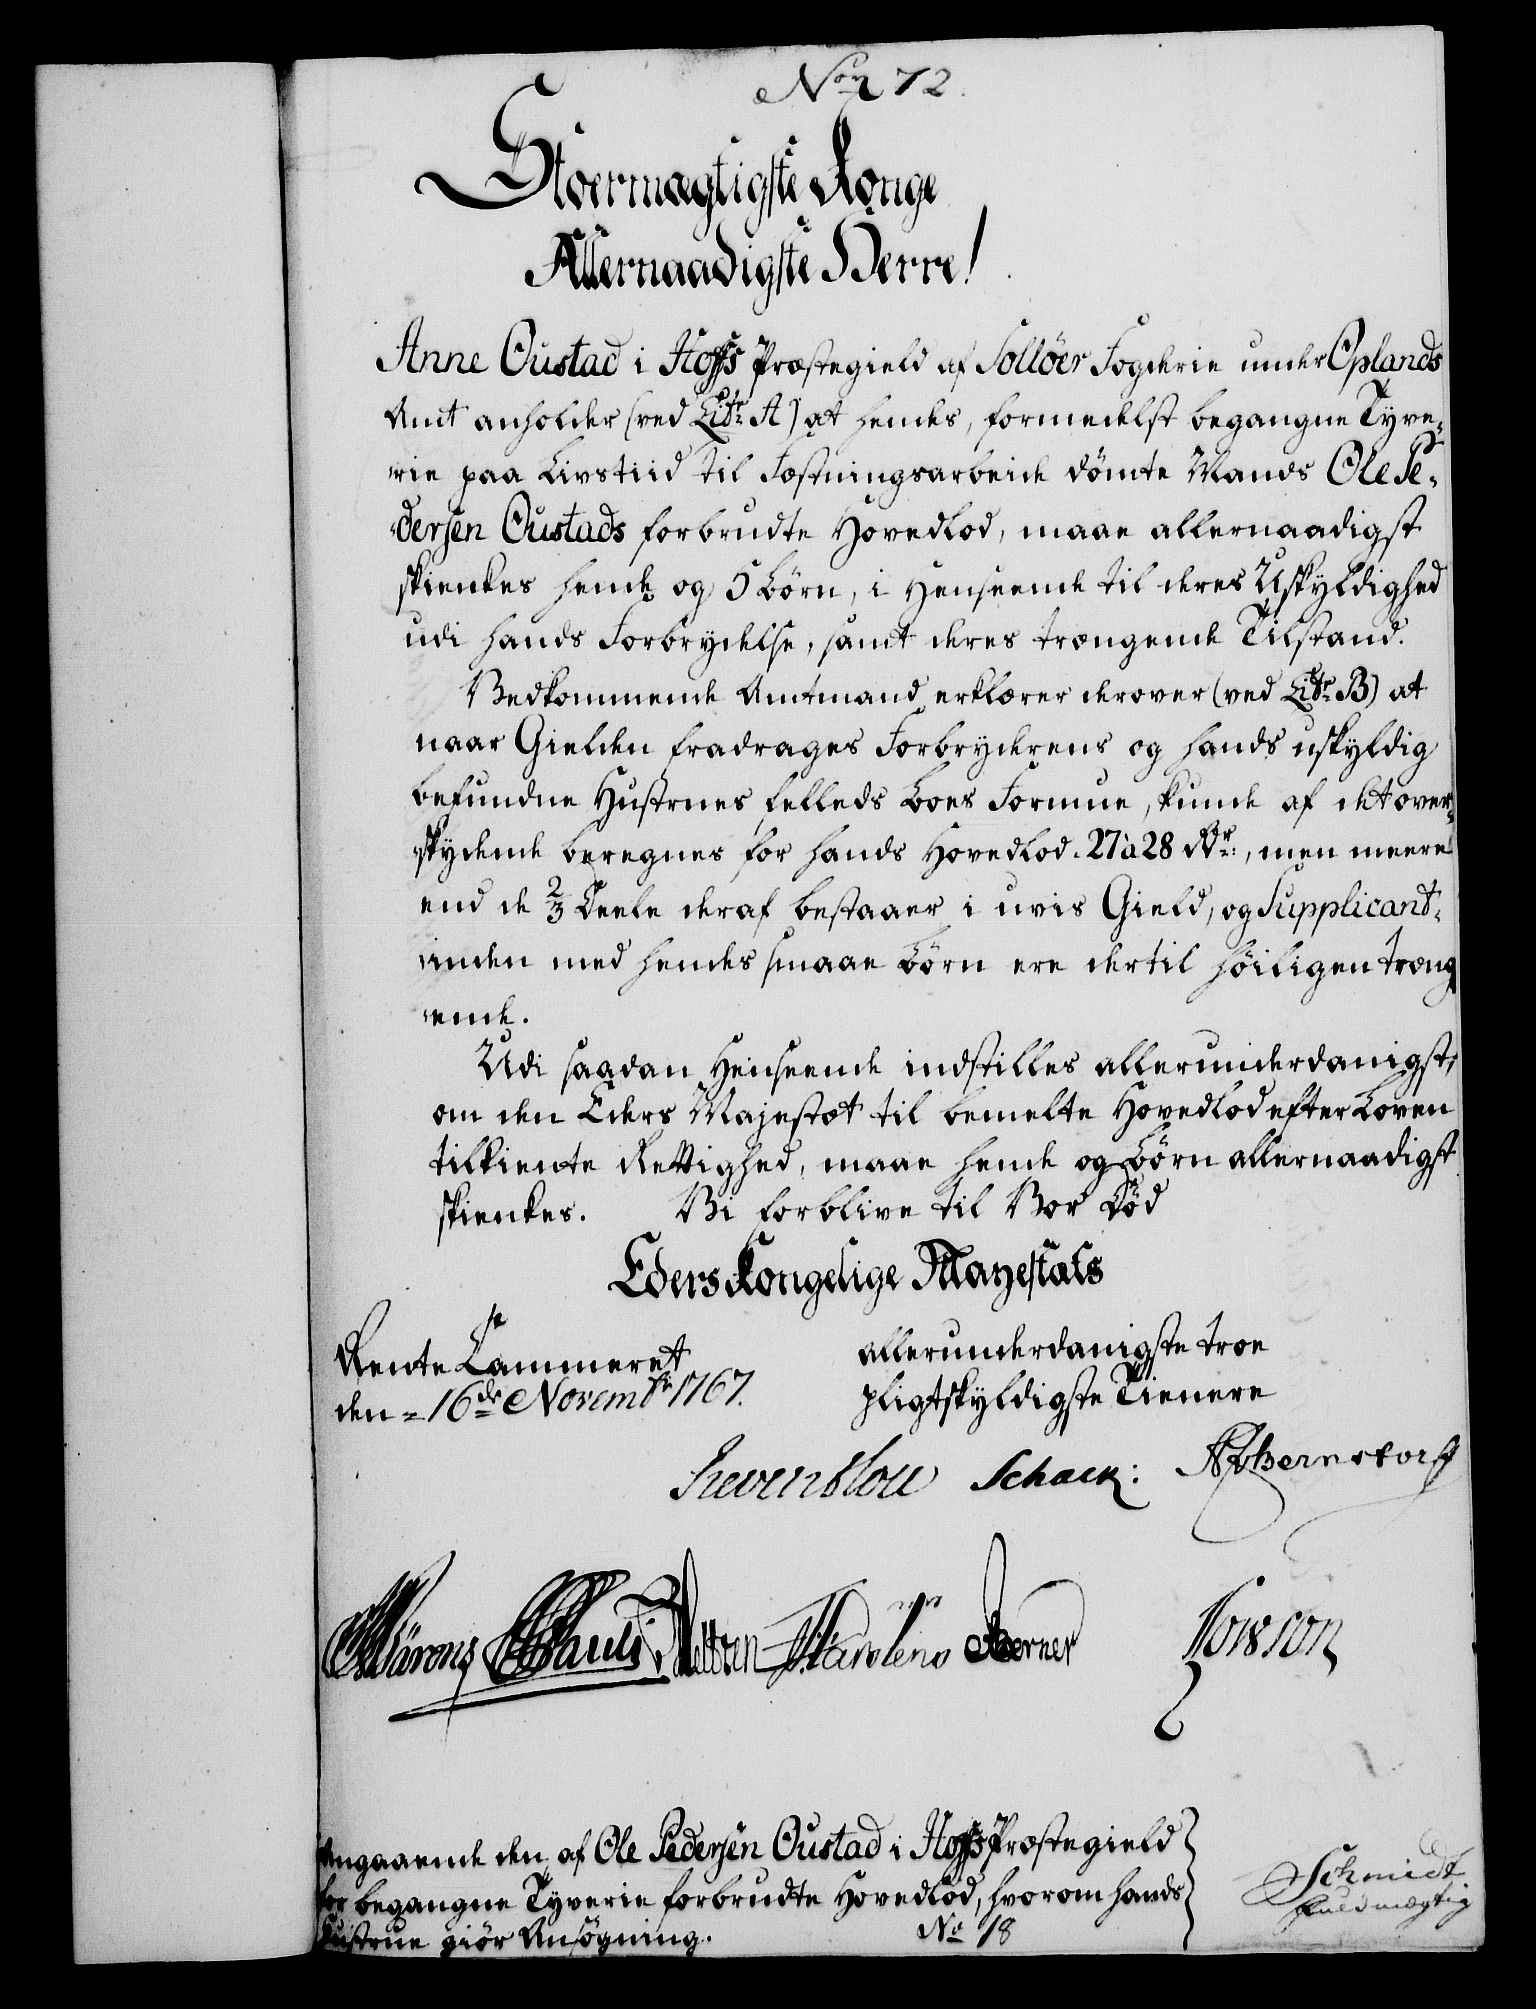 No 72.
Stoermægtigste Konge
Allernaadigste Herre!
Anne Oustad i Hoffs Præstegield af Solløer Fogderie under Oplands
Amt anholder (ved Litr A) at hendes, formedelst begangne Tyve-
rie paa Livstiid til Fæstningsarbeide dömte Mands Ole Pe-
dersen Oustads forbrudte Hovedlod, maae allernaadigst
skienkes hende og 5 börn, i Henseende til deres Uskyldighed
udi hands Forbrydelse, samt deres trængende Tilstand.
Vedkommende Amtmand erklærer derover (ved Litr B) at
naar Gielden fradrages Forbryderens og hands uskyldig
befundne Hustrues fælleds Boes Formue, kunde af det over-
skydende beregnes for hands Hovedlod 27 à 28 Rdr:, men meere
end de 2/3 Deele deraf bestaaer i uvis Gield, og Supplicant-
inden med hendes smaae börn ere dertil höiligen træng
ende.
Udi saadan Henseende indstilles allerunderdanigst,
om den Eders Majestæt til bemelte Hovedlod efter Loven
tilkiente Rettighed, maae hende og Börn allernaadigst
skienkes. Vi forblive til Vor Död
Eders Kongelige Mayestæts
Rente Cammeret
den 16de Novembr 1767.
allerunderdanigste troe
pligtskyldigste Tienere
Reventlou Schack: APBernstorff
Pauli Berner
Angaaende den af Ole Pedersen Oustad i Hoffs Præstegield
for begangne Tyverie forbrudte Hovedlod, hvorom hands
Hustrue giör Ansögning.
No 18
Schmidt
fuldmægtig